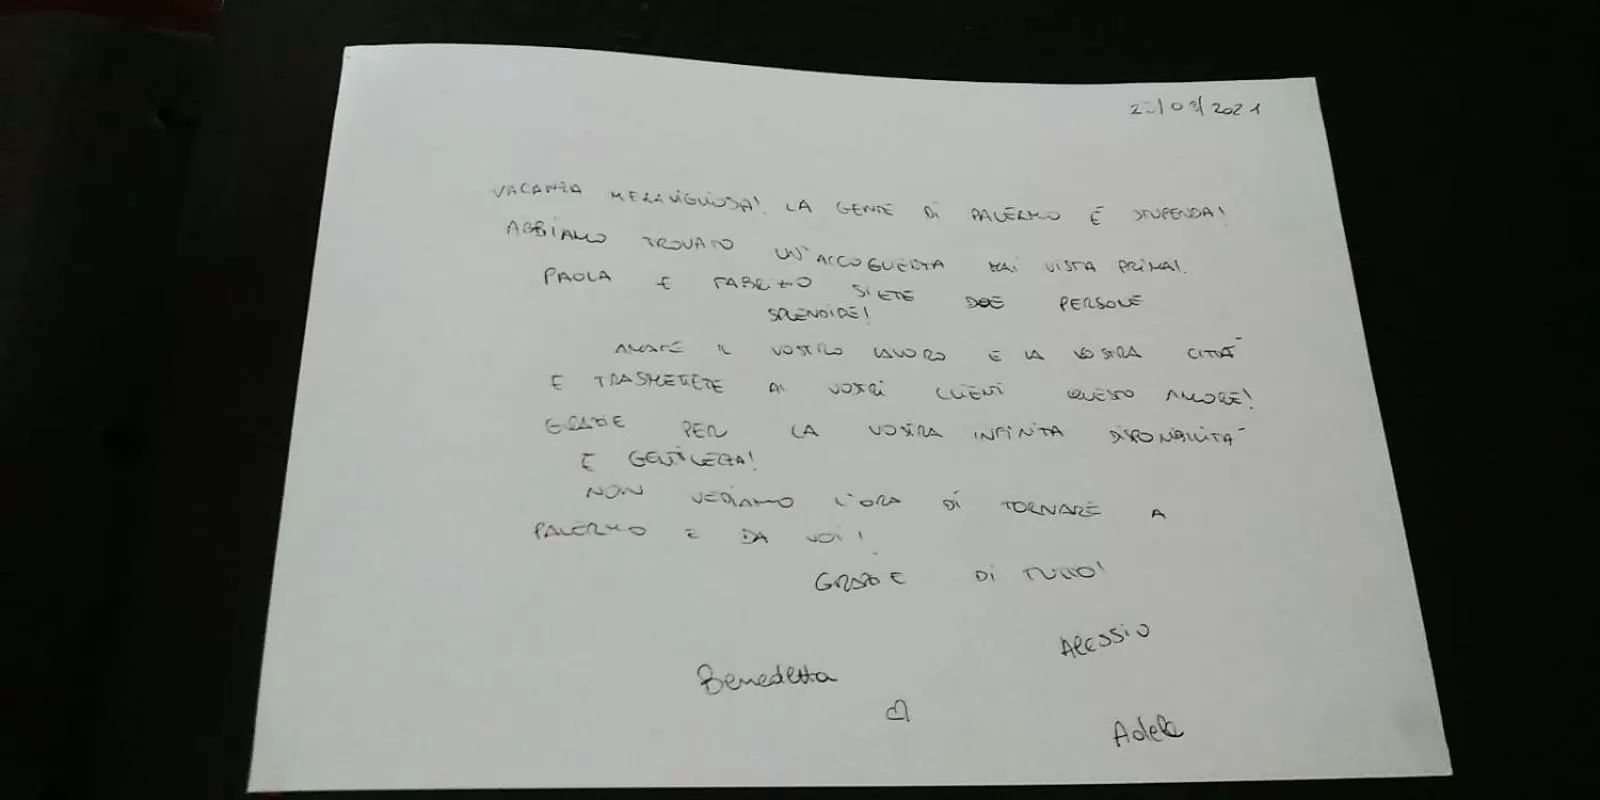 /2021
VACANZA MERAVIGLIOSA! LA GENTE DI PALERMO È STUPENDA!
ABBIAMO TROVATO UN'ACCOGLIENZA MAI VISTA PRIMA!
PAOLA E FABRIZIO SIETE DUE PERSONE
SPLENDIDE!
AMATE IL VOSTRO LAVORO E LA VOSTRA CITTÀ
E TRASMETTETE AI VOSTRI CLIENTI QUESTO AMORE!
GRAZIE PER LA VOSTRA INFINITA DISPONIBILITÀ
E GENTILEZZA!
NON VEDIAMO L'ORA DI TORNARE A
PALERMO E DA VOI!
GRAZIE DI TUTTO!
Alessio
Benedetta
Adele